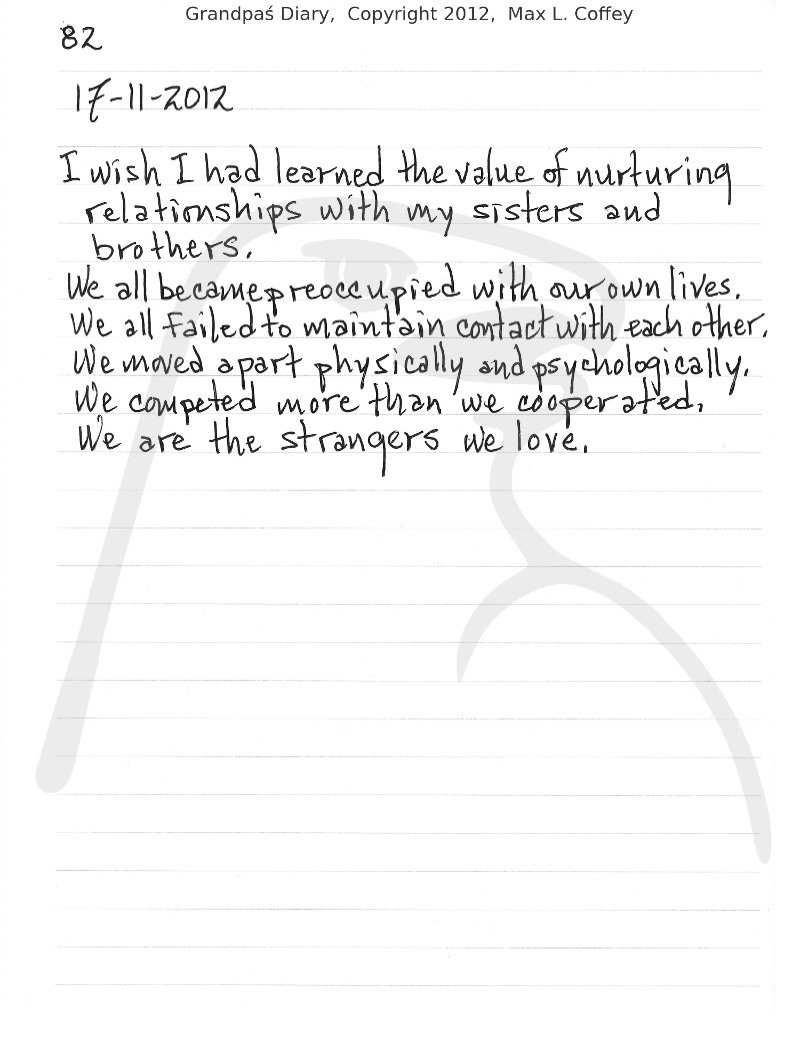 Grandpaś Diary,  Copyright 2012,  Max L. Coffey
82
17-11-2012
I wish I had learned the value of nurturing
relationships with my sisters and
brothers.
We all became preoccupied with our own lives.
We all failed to maintain contact with each other.
We moved apart physically and psychologically.
We competed more than we cooperated.
We are the strangers we love.